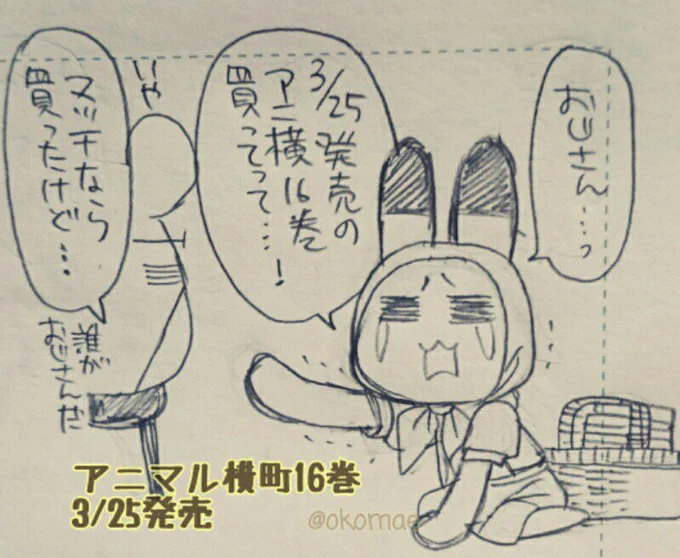 おじさん…っ
3/25発売の
アニ横16巻
買ってって…!
いや
マッチなら
買ったけど…
誰が
おじさんだ
アニマル横町16巻
3/25発売
@okomae